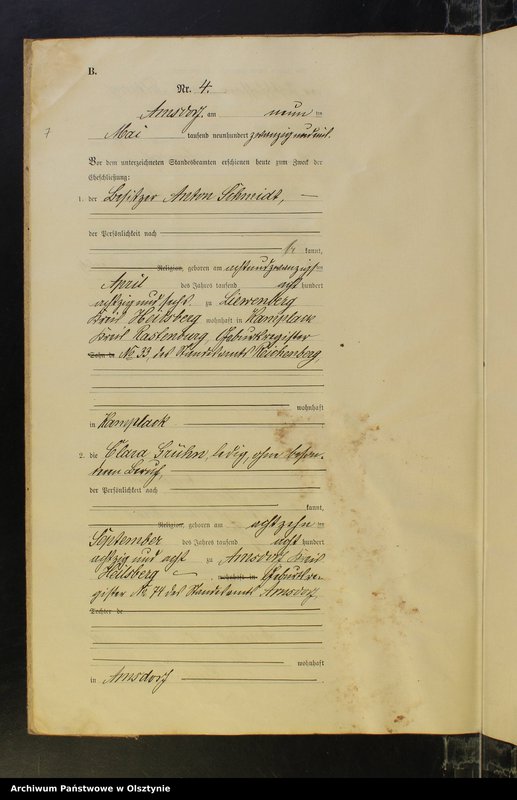 B.
Nr. 4.
Amsdorf, am neun ten
7
Mai tausend neunhundert zwanzig und eins.
Vor dem unterzeichneten Standesbeamten erschienen heute zum Zweck der
Eheschließung:
1. der Besitzer Anton Schmidt,
der Persönlichkeit nach
be kannt,
Religion, geboren am achtundzwanzigsten
April des Jahres tausend acht hundert
achtzig und sechs zu Liewenberg
Kreis Heilsberg, wohnhaft in Kamplack
Kreis Rastenburg, Geburtsregister
Sohn de No 33, des Standesamts Reichenberg
wohnhaft
in Kamplack
2. die Clara Grühn, ledig, ohne beson-
deren Beruf,
der Persönlichkeit nach
kannt,
Religion, geboren am achtzehn ten
September des Jahres tausend acht hundert
achtzig und acht zu Amsdorf Kreis
Heilsberg wohnhaft in Geburtsre-
gister No 74 des Standesamts Amsdorf
Tochter de
wohnhaft
in Amsdorf
Archiwum Państwowe w Olsztynie